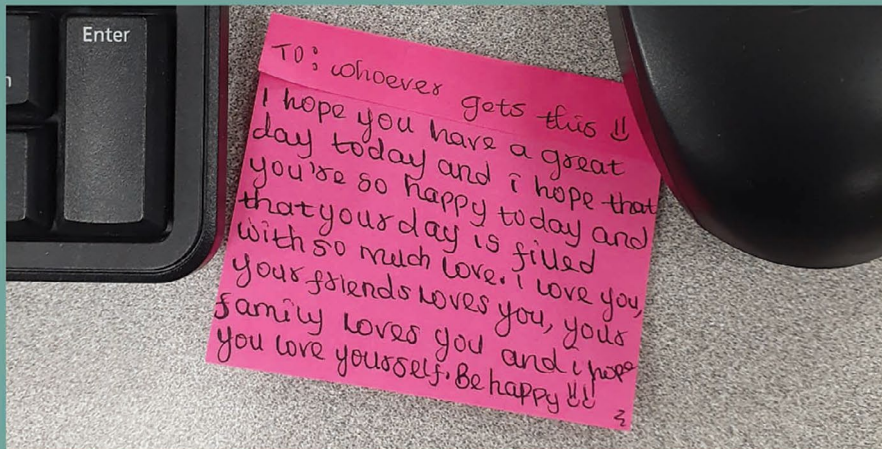 Enter
TO: whoever gets this !!
I hope you have a great
day today and i hope that
you're so happy today and
that your day is filled
with so much love. i love you,
your friends loves you, your
family loves you and i hope
you love yourself. Be happy !!